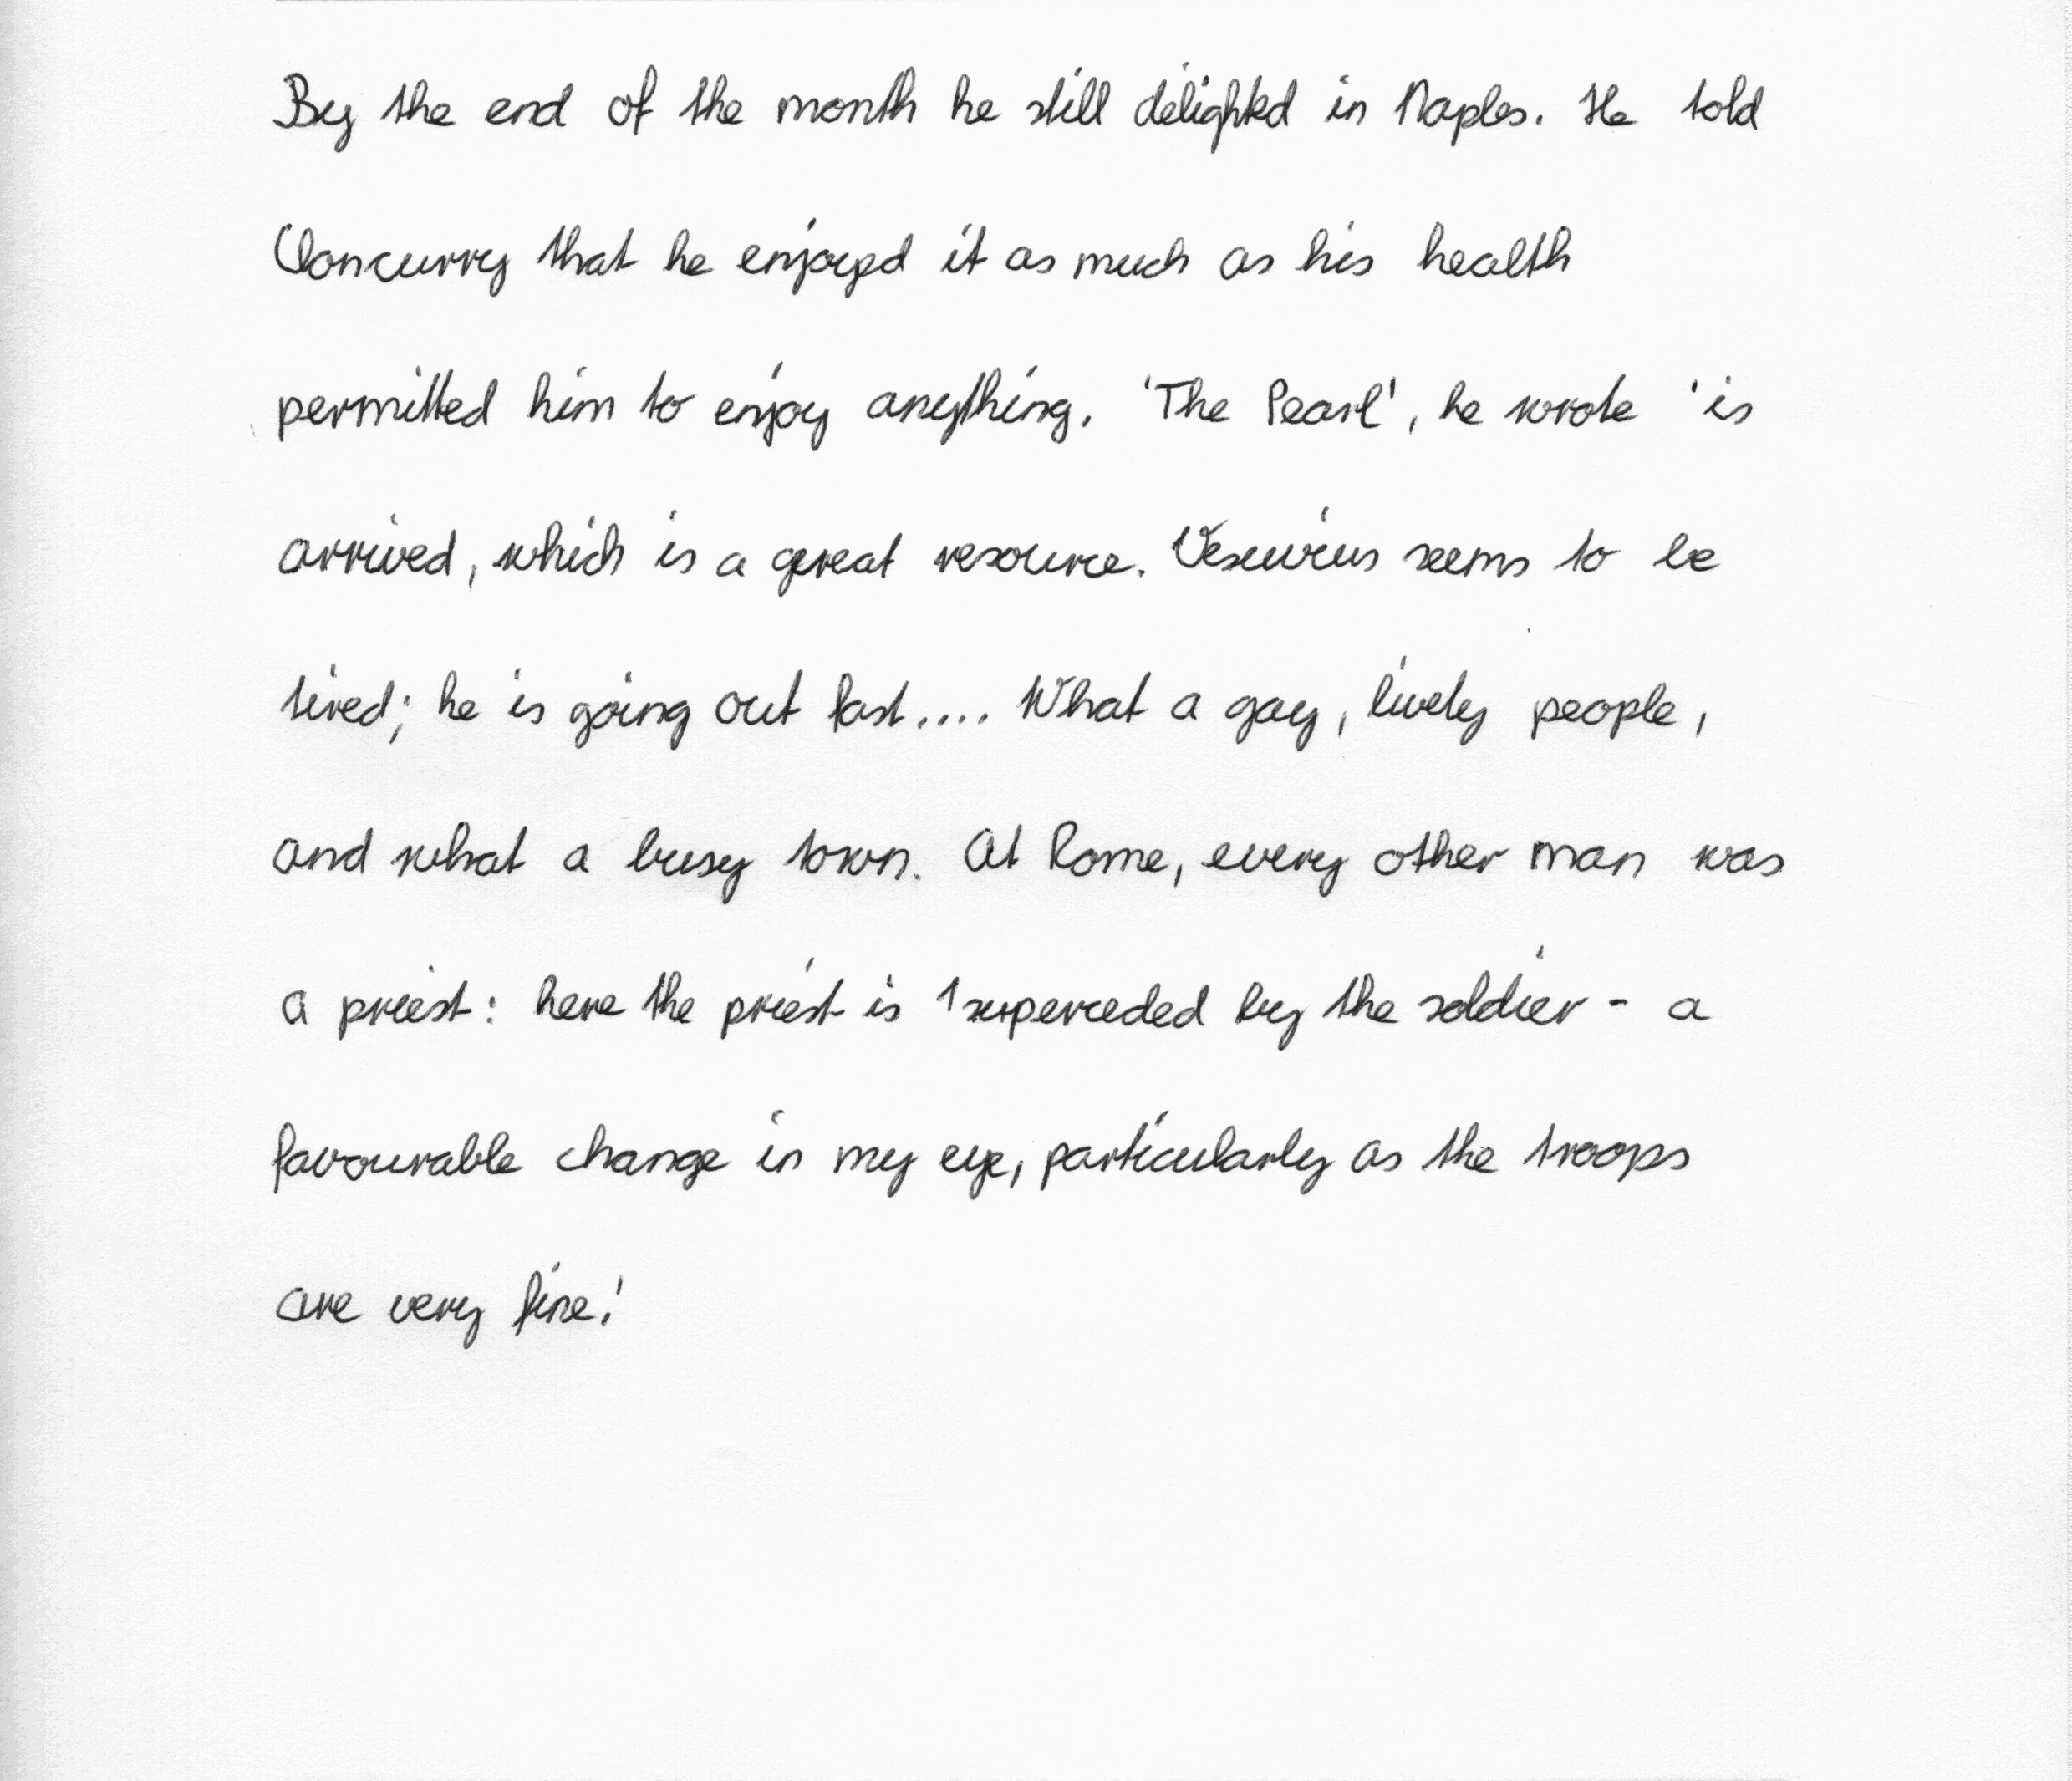 By the end of the month he still delighted in Naples. He told
Cloncurry that he enjoyed it as much as his health
permitted him to enjoy anything. 'The Pearl', he wrote 'is
arrived, which is a great resource. Vesuvius seems to be
tired; he is going out fast.... What a gay, lively people,
and what a busy town. At Rome, every other man was
a priest: here the priest is 1superceded by the soldier - a
favourable change in my eye, particularly as the troops
are very fine!